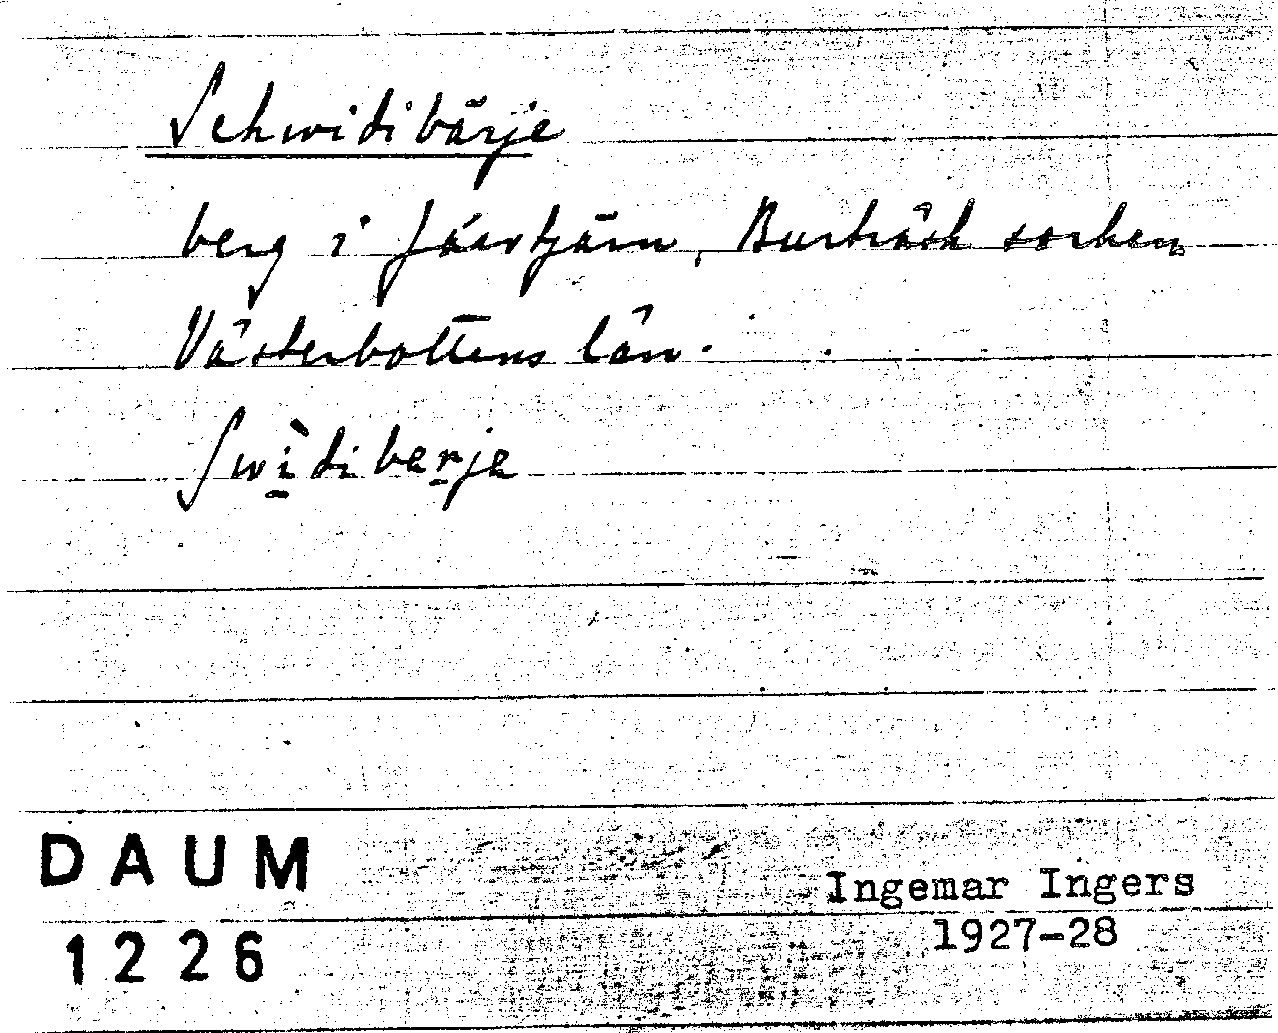 Schwidibärje
berg i Jäertjärn, Burträsk socken
Västerbottens län.
Swìdiberje
DAUM
1226
Ingemar Ingers
1927-28